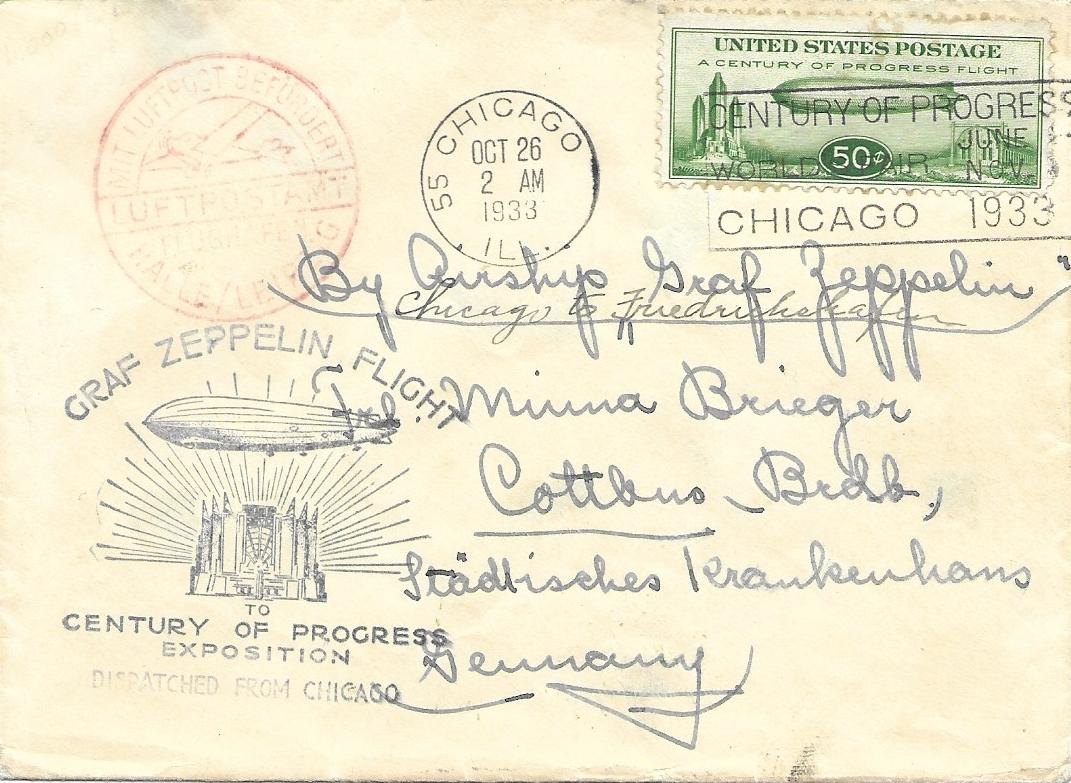 UNITED STATES POSTAGE
A CENTURY OF PROGRESS FLIGHT
50¢
CENTURY OF PROGRESS
JUNE
WORLD FAIR NOV.
CHICAGO 1933
CHICAGO
55
OCT 26
2 AM
1933
ILL.
MIT LUFTPOST BEFÖRDERT
LUFTPOSTAMT
HALLE/LEIPZIG
"By Airship Graf Zeppelin"
Chicago to Friedrichshafen
GRAF ZEPPELIN FLIGHT
Frl. Minna Brieger
Cottbus Brdb.,
Städtisches Krankenhaus
Germany
TO
CENTURY OF PROGRESS
EXPOSITION
DISPATCHED FROM CHICAGO